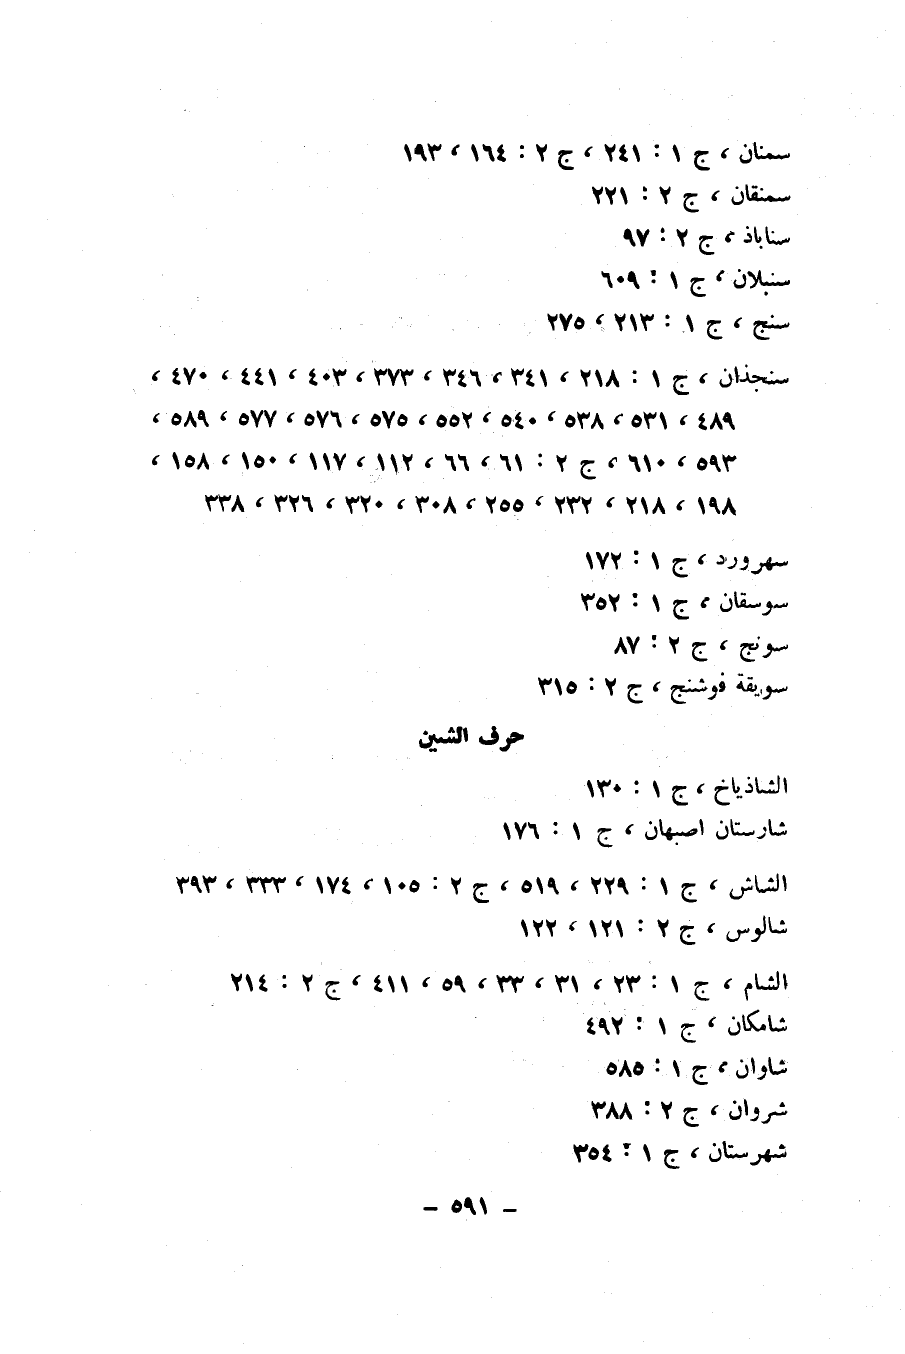 سمنان ، ج ١ : ٢٤١ ، ج ٢ : ١٦٤ ، ١٩٣
سمنقان ، ج ٢ : ٢٢١
سناباذ ، ج ٢ : ٩٧
سنبلان ، ج ١ : ٦٠٩
سنج ، ج ١ : ٢١٣ ، ٢٧٥
سنجذان ، ج ١ : ٢١٨ ، ٣٤١ ، ٣٤٦ ، ٣٧٣ ، ٤٠٣ ، ٤٤١ ، ٤٧٠ ،
٤٨٩ ، ٥٣١ ، ٥٣٨ ، ٥٤٠ ، ٥٥٢ ، ٥٧٥ ، ٥٧٦ ، ٥٧٧ ، ٥٨٩ ،
٥٩٣ ، ٦١٠ ، ج ٢ : ٦١ ، ٦٦ ، ١١٢ ، ١١٧ ، ١٥٠ ، ١٥٨ ،
١٩٨ ، ٢١٨ ، ٢٣٢ ، ٢٥٥ ، ٣٠٨ ، ٣٢٠ ، ٣٢٦ ، ٣٣٨
سهرورد ، ج ١ : ١٧٢
سوسقان ، ج ١ : ٣٥٢
سونج ، ج ٢ : ٨٧
سويقة فوشنج ، ج ٢ : ٣١٥
حرف الشين
الشاذياخ ، ج ١ : ١٣٠
شارستان اصبهان ، ج ١ : ١٧٦
الشاش ، ج ١ : ٢٢٩ ، ٥١٩ ، ج ٢ : ١٠٥ ، ١٧٤ ، ٣٣٣ ، ٣٩٣
شالوس ، ج ٢ : ١٢١ ، ١٢٢
الشام ، ج ١ : ٢٣ ، ٣١ ، ٣٣ ، ٥٩ ، ٤١١ ، ج ٢ : ٢١٤
شامكان ، ج ١ : ٤٩٢
شاوان ، ج ١ : ٥٨٥
شروان ، ج ٢ : ٣٨٨
شهرستان ، ج ١ : ٣٥٤
– ٥٩١ –